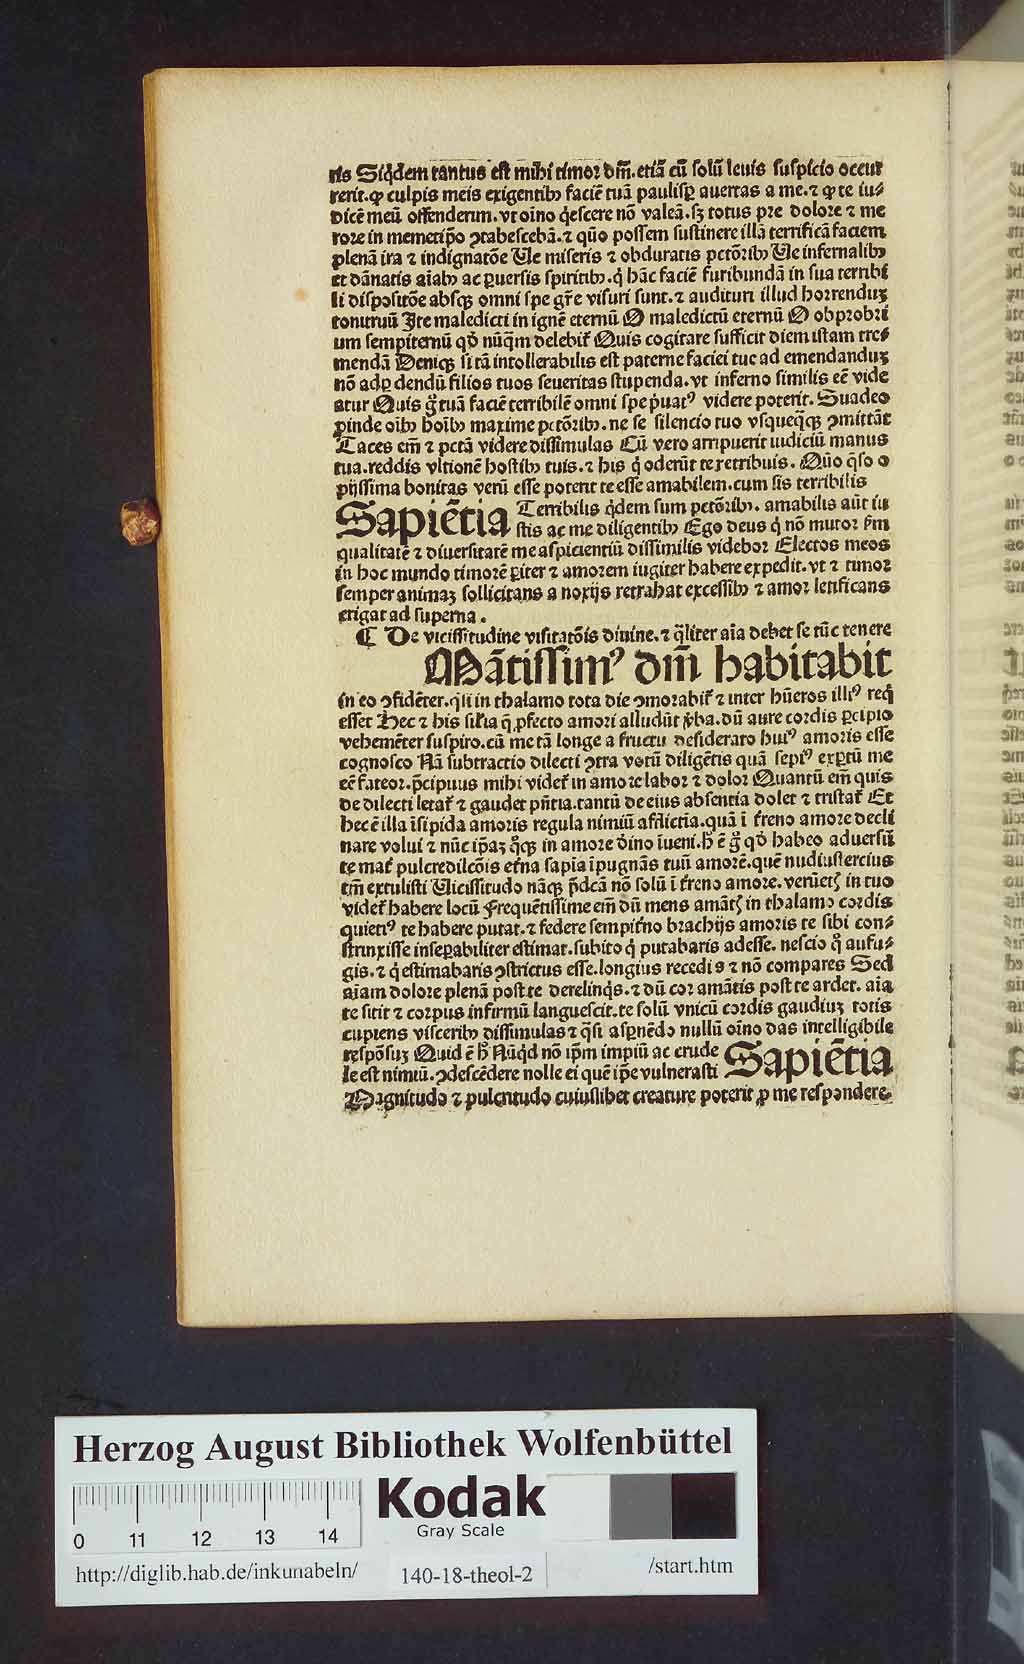 ris Siqͥdem tantus est mihi timor dm̄. etiā cū solū leuis suspicio occur
rerit. ꝙ culpis meis exigentibꝫ faciē tuā paulisꝑ auertas a me. ⁊ ꝙ te iu⸗
dicē meū offenderim. vt oīno qͥescere nō valeā. sꝫ totus pre dolore ⁊ me
rore in memetip̄o ꝯtabescebā. ⁊ quō possem sustinere illā terrificā faciem
plenā ira ⁊ indignatōe Ve miseris ⁊ obduratis pctōribꝫ Ve infernalibꝫ
et dānatis aīabꝫ ac ꝑuersis spiritibꝫ. qͥ hāc faciē furibundā in sua terribi
li dispositōe absqꝫ omni spe gr̄e visuri sunt. ⁊ audituri illud horrenduꝫ
tonitruū Ite maledicti in ignē eternū O maledictū eternū O obprobri
um sempiternū qd̓ nūqm̄ delebit᷑ Quis cogitare sufficit diem istam tre⸗
mendā Deniqꝫ si tā intollerabilis est paterne faciei tue ad emendanduꝫ
nō adꝑdendū filios tuos seueritas stupenda. vt inferno similis eē vide
atur Quis gͦ tuā faciē terribilē omni spe pͥuatꝰ videre poterit. Suadeo
ꝓinde oībꝫ hoībꝫ maxime pctōribꝫ. ne se silencio tuo vsqueqꝫ ꝯmittāt
Taces em̄ ⁊ pctā videre dissimulas Cū vero arripuerit iudiciū manus
tua. reddis vltionē hostibꝫ tuis. ⁊ his qͥ oderūt te retribuis. Quō qso o
pijssima bonitas verū esse poterit te esse amabilem. cum sis terribilis
Sapiētia Terribilis qͥdem sum pctōribꝫ. amabilis aūt iu
stis ac me diligentibꝫ Ego deus qͥ nō mutor ẜm
qualitatē ⁊ diuersitatē me aspicientiū dissimilis videbor Electos meos
in hoc mundo timorē ꝑiter ⁊ amorem iugiter habere expedit. vt ⁊ timor
semper animaꝫ sollicitans a noxijs retrahat excessibꝫ ⁊ amor letificans
erigat ad superna.
¶ De vicissitudine visitatōis diuine. ⁊ qͣliter aīa debet se tūc tenere
Māntissimꝰ dm̄ habitabit
in eo ꝯfidēter. qͣsi in thalamo tota die ꝯmorabit᷑ ⁊ inter hūeros illiꝰ reqͥ
esset Hec ⁊ his sil̓ia q̄ ꝓfecto amori alludūt v̓ba. dū aure cordis ꝑcipio
vehemēter suspiro. cū me tā longe a fructu desiderato huiꝰ amoris esse
cognosco Nā subtractio dilecti ꝯtra votū diligētis quā sepiꝰ exꝑtū me
eē fateor. p̄cipuus mihi videt᷑ in amore labor ⁊ dolor Quantū em̄ quis
de dilecti letat᷑ ⁊ gaudet pn̄tia. tantū de eius absentia dolet ⁊ tristat᷑ Et
hec ē illa īsipida amoris regula nimiū afflictīa. quā ī t᷑reno amore decli
nare volui ⁊ nūc ip̄aꝫ qͦqꝫ in amore dīno īueni. h̓ ē gͦ qd̓ habeo aduersū
te mat᷑ pulcredilcōis et᷑na sapīa īpugnās tuū amorē. quē nudiustercius
tm̄ extulisti Vicissitudo nāqꝫ p̄dcā nō solū ī t᷑reno amore. verūetꝫ in tuo
videt᷑ habere locū Frequētissime em̄ dū mens amātꝭ in thalamo cordis
quietiꝰ te habere putat. ⁊ federe sempit᷑no brachijs amoris te sibi con⸗
strinxisse inseꝑabiliter estimat. subito qͥ putabaris adesse. nescio qͦ aufu⸗
gis. ⁊ qͥ estimabaris ꝯstrictus esse. longius recedis ⁊ nō compares Sed
aīam dolore plenā post te derelinqͥs. ⁊ dū cor amātis post te ardet. aīa
te sitit ⁊ corpus infirmū languescit. te solū vnicū cordis gaudiuꝫ totis
cupiens visceribꝫ dissimulas ⁊ qͣsi asꝑnēdo nullū oīno das intelligibile
respōsuꝫ Quid ē hͦ Nūqͥd nō ip̄m impiū ac crude
le est nimiū. ꝯdescēdere nolle ei quē ip̄e vulnerasti Sapiētia
Magnitudo ⁊ pulcritudo cuiuslibet creature poterit ꝓ me respondere.
Herzog August Bibliothek Wolfenbüttel
Kodak
Gray Scale
0 11 12 13 14
http://diglib.hab.de/inkunabeln/ 140-18-theol-2 /start.htm